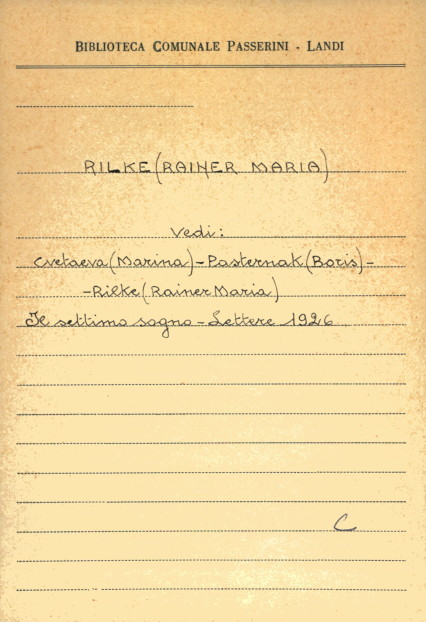 BIBLIOTECA COMUNALE PASSERINI - LANDI
RILKE (RAINER MARIA)
Vedi:
Cvetaeva (Marina) - Pasternak (Boris) -
- Rilke (Rainer Maria)
Il settimo sogno - Lettere 1926
C